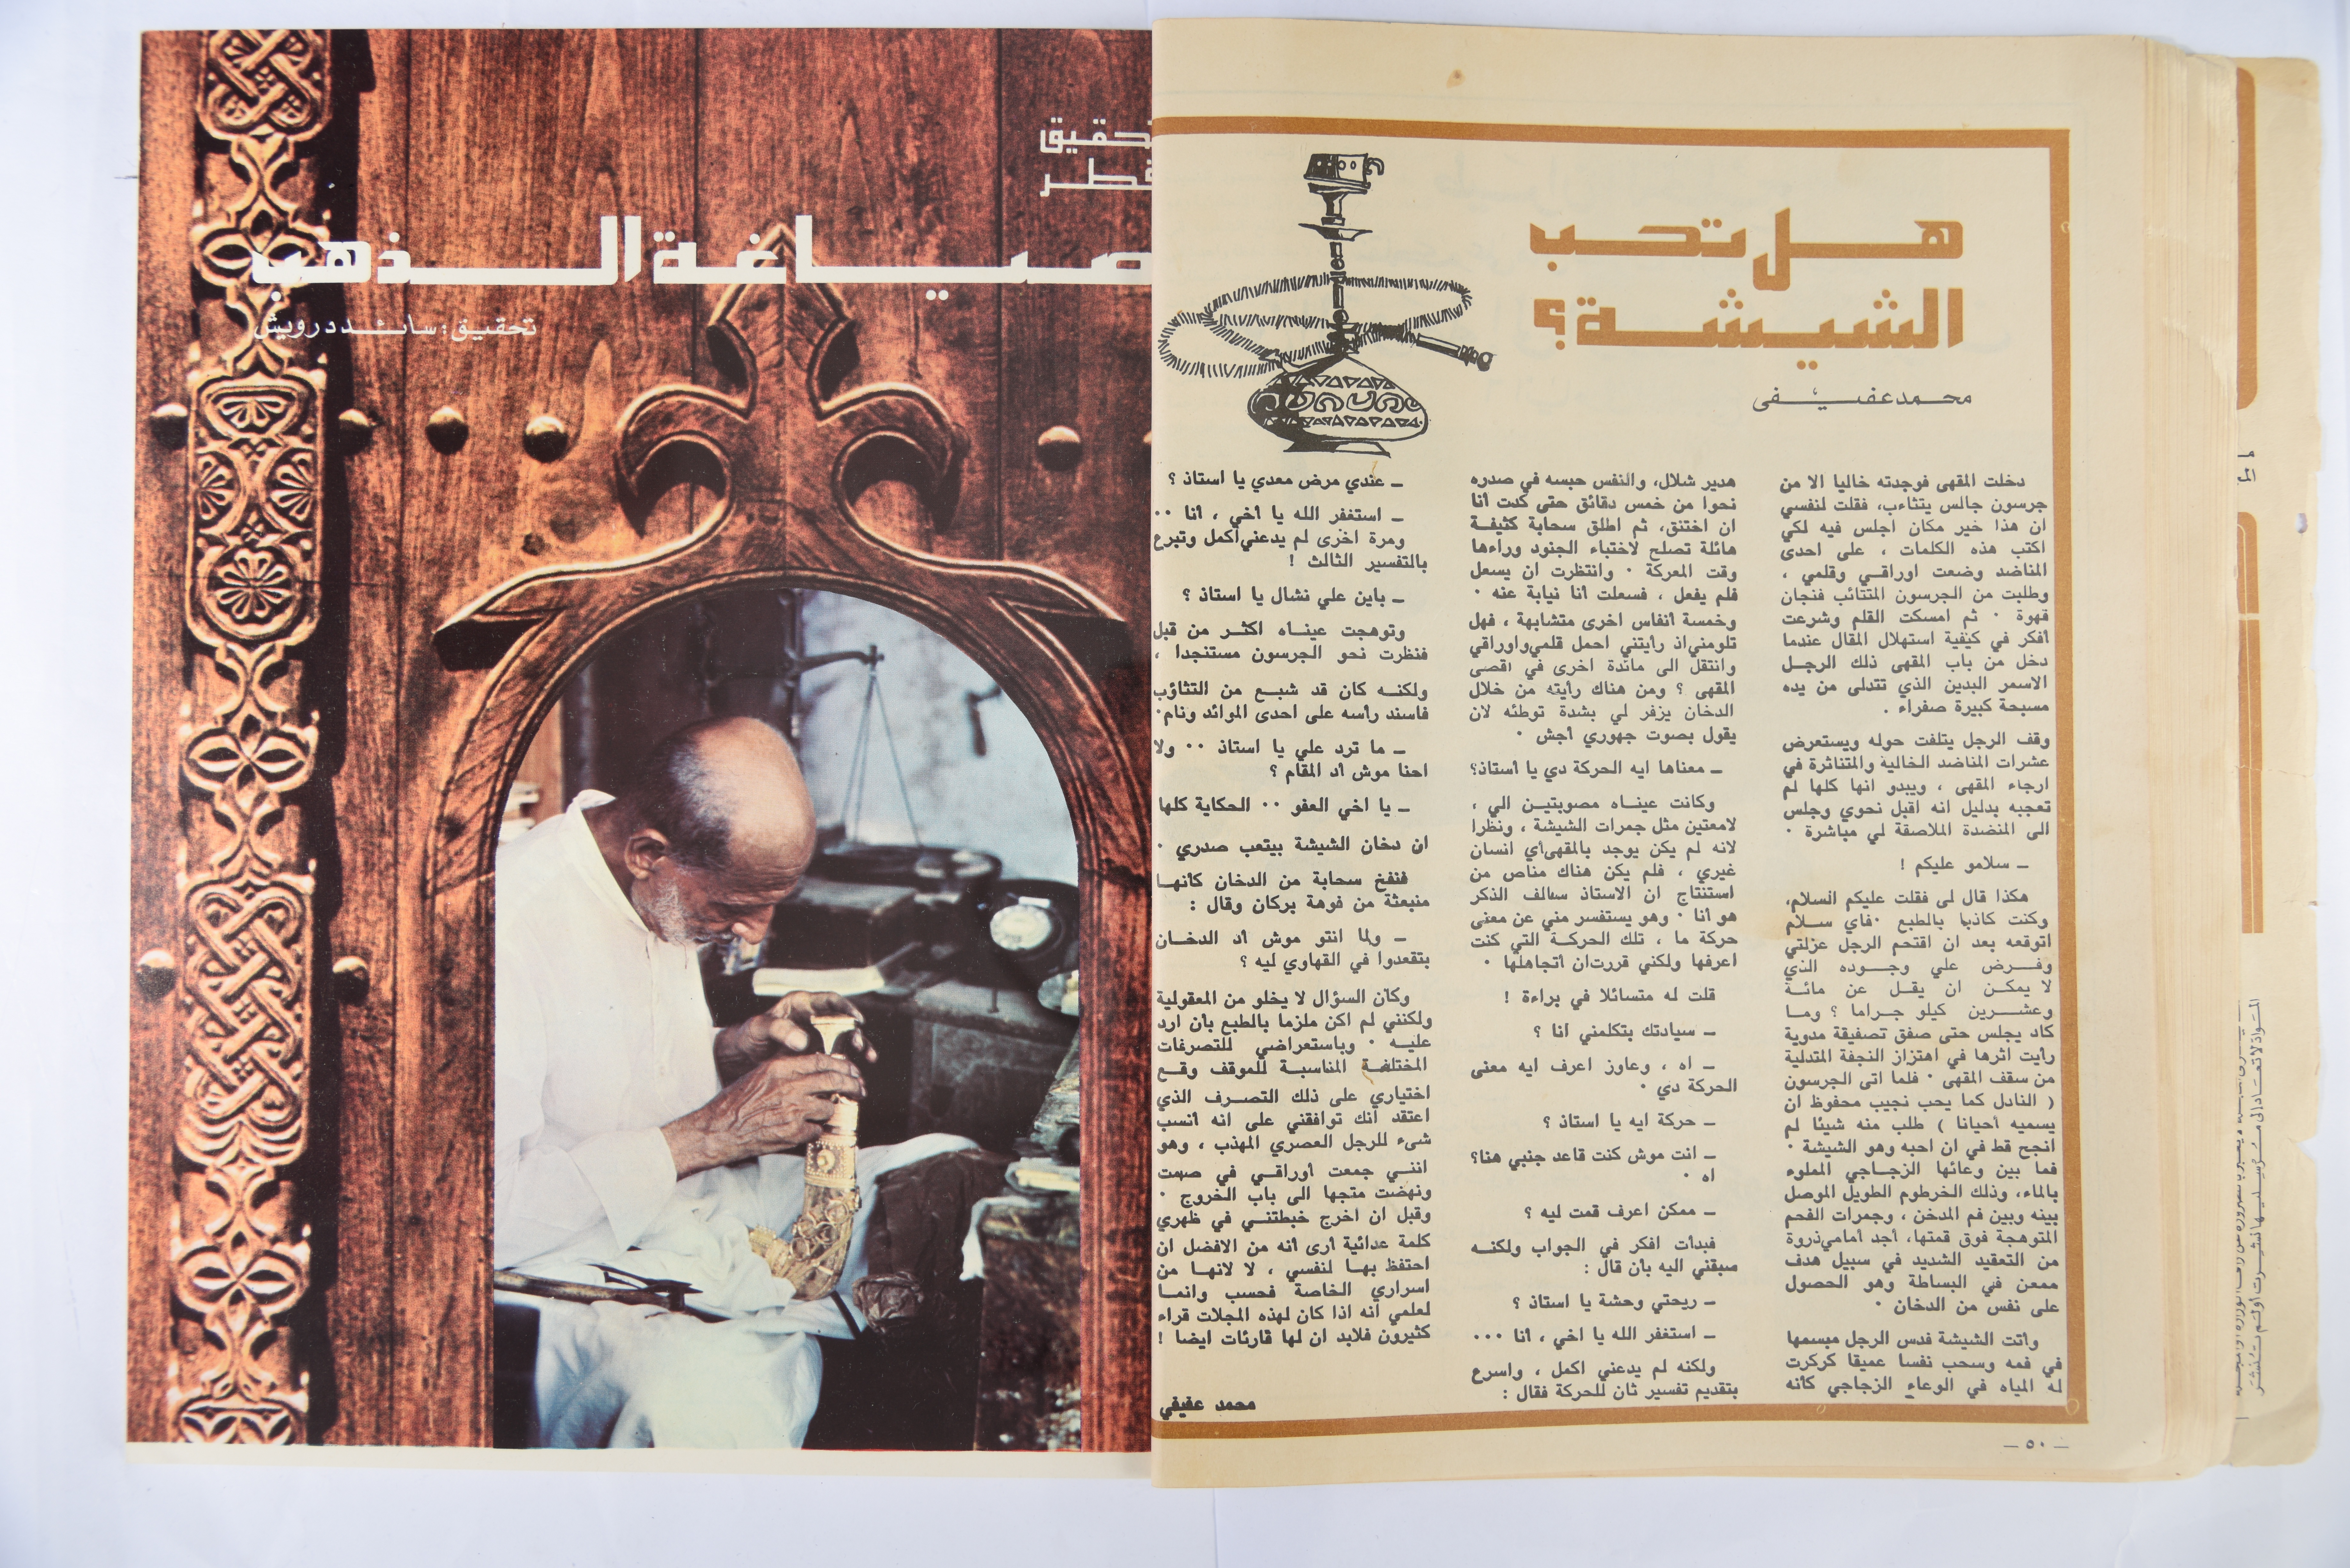 هل تحب
الشيشة؟
محمد عفيفى
دخلت المقهى فوجدته خاليا الا من
جرسون جالس يتثاءب، فقلت لنفسي
ان هذا خير مكان اجلس فيه لكي
اكتب هذه الكلمات ، على احدى
المناضد وضعت اوراقي وقلمي ،
وطلبت من الجرسون المتثائب فنجان
قهوة · ثم امسكت القلم وشرعت
أفكر في كيفية استهلال المقال عندما
دخل من باب المقهى ذلك الرجل
الاسمر البدين الذي تتدلى من يده
مسبحة كبيرة صفراء .
وقف الرجل يتلفت حوله ويستعرض
عشرات المناضد الخالية والمتناثرة في
ارجاء المقهى ، ويبدو انها كلها لم
تعجبه بدليل انه اقبل نحوي وجلس
الى المنضدة الملاصقة لي مباشرة ·
ـ سلامو عليكم !
هكذا قال لى فقلت عليكم السلام،
وكنت كاذبا بالطبع ·فاي سلام
اتوقعه بعد ان اقتحم الرجل عزلتي
وفرض علي وجوده الذي
لا يمكن ان يقل عن مائة
وعشرين كيلو جراما ؟ وما
كاد يجلس حتى صفق تصفيقة مدوية
رأيت اثرها في اهتزاز النجفة المتدلية
من سقف المقهى · فلما اتى الجرسون
( النادل كما يحب نجيب محفوظ ان
يسميه أحيانا ) طلب منه شيئا لم
انجح قط في ان احبه وهو الشيشة ·
فما بين وعائها الزجاجي المملوء
بالماء، وذلك الخرطوم الطويل الموصل
بينه وبين فم المدخن ، وجمرات الفحم
المتوهجة فوق قمتها، أجد أمامي ذروة
من التعقيد الشديد في سبيل هدف
ممعن في البساطة وهو الحصول
على نفس من الدخان ·
وأتت الشيشة فدس الرجل مبسمها
في فمه وسحب نفسا عميقا كركرت
له المياه في الوعاء الزجاجي كأنه
هدير شلال، والنفس حبسه في صدره
نحوا من خمس دقائق حتى كدت أنا
ان اختنق، ثم اطلق سحابة كثيفة
هائلة تصلح لاختباء الجنود وراءها
وقت المعركة · وانتظرت ان يسعل
فلم يفعل ، فسعلت أنا نيابة عنه ·
وخمسة أنفاس اخرى متشابهة ، فهل
تلومني اذ رأيتني احمل قلمي واوراقي
وانتقل الى مائدة اخرى في اقصى
المقهى ؟ ومن هناك رأيته من خلال
الدخان يزفر لي بشدة توطئه لان
يقول بصوت جهوري أجش ·
ـ معناها ايه الحركة دي يا أستاذ؟
وكانت عيناه مصوبتين الي ،
لامعتين مثل جمرات الشيشة ، ونظرا
لانه لم يكن يوجد بالمقهى أي انسان
غيري ، فلم يكن هناك مناص من
استنتاج ان الاستاذ سالف الذكر
هو أنا · وهو يستفسر مني عن معنى
حركة ما ، تلك الحركة التي كنت
اعرفها ولكني قررت ان أتجاهلها ·
قلت له متسائلا في براءة !
ـ سيادتك بتكلمني أنا ؟
ـ اه ، وعاوز اعرف ايه معنى
الحركة دي ·
ـ حركة ايه يا استاذ ؟
ـ انت موش كنت قاعد جنبي هنا؟
اه ·
ـ ممكن اعرف قمت ليه ؟
فبدأت افكر في الجواب ولكنه
سبقني اليه بأن قال :
ـ ريحتي وحشة يا استاذ ؟
ـ استغفر الله يا اخي ، أنا ···
ولكنه لم يدعني اكمل ، واسرع
بتقديم تفسير ثان للحركة فقال :
ـ عندي مرض معدي يا استاذ ؟
ـ استغفر الله يا أخي ، أنا ··
ومرة اخرى لم يدعني أكمل وتبرع
بالتفسير الثالث !
ـ باين علي نشال يا استاذ ؟
وتوهجت عيناه اكثر من قبل
فنظرت نحو الجرسون مستنجدا ،
ولكنه كان قد شبع من التثاؤب
فاسند رأسه على احدى الموائد ونام·
ـ ما ترد علي يا استاذ ·· ولا
احنا موش أد المقام ؟
ـ يا اخي العفو ·· الحكاية كلها
ان دخان الشيشة بيتعب صدري ·
فنفخ سحابة من الدخان كأنها
منبعثة من فوهة بركان وقال :
ـ ولما انتو موش أد الدخان
بتقعدوا في القهاوي ليه ؟
وكان السؤال لا يخلو من المعقولية
ولكنني لم اكن ملزما بالطبع بأن ارد
عليه · وباستعراضي للتصرفات
المختلفة المناسبة للموقف وقع
اختياري على ذلك التصرف الذي
اعتقد انك توافقني على انه أنسب
شىء للرجل العصري المهذب ، وهو
انني جمعت أوراقي في صمت
ونهضت متجها الى باب الخروج ·
وقبل ان اخرج خبطتني في ظهري
كلمة عدائية أرى أنه من الافضل ان
احتفظ بها لنفسي ، لا لانها من
اسراري الخاصة فحسب وانما
لعلمي أنه اذا كان لهذه المجلات قراء
كثيرون فلابد ان لها قارئات ايضا !
محمد عفيفي
ـ ٥٠ ـ
تحقيق
قطر
صياغة الذهب
تحقيق : سائد درويش